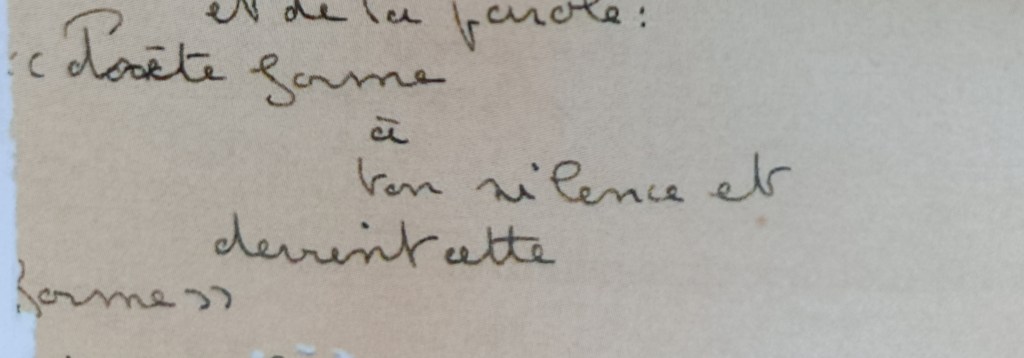 et de la parole:
<< Poète forme
à
ton silence et
devient cette
forme >>